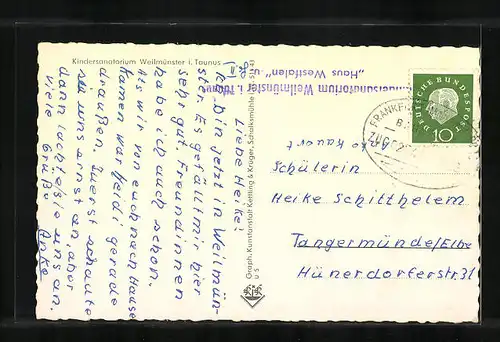 Kindersanatorium Weilmünster i. Taunus
Liebe Heike!
bin jetzt in Weilmün-
ster. Es gefällt mir hier
sehr gut. Freundinnen
habe ich auch schon.
Als wir von euch nach Hause
kamen war Heidi gerade
draußen. Zuerst schaute
sie uns ernst an, aber
dann lachte sie uns an.
Viele Grüße
Anke
Graph. Kunstanstalt Kettling & Krüger, Schalksmühle
Kindersanatorium Weilmünster i. Taunus
„Haus Westfalen" u.
DEUTSCHE BUNDESPOST
10
FRANKF
ZUG
Anke Kauert
Schülerin
Heike Schitthelem
Tangermünde/Elbe
Hünerdorferstr. 31